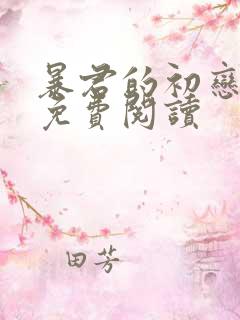 暴君的初戀
免費閱讀
田芳